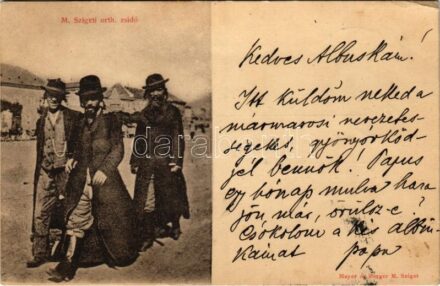 M. Szigeti orth. zsidó
Kedves Albuskám!
Itt küldöm neked a
mármarosi nevezetes-
ségeket, gyönyörköd-
jél bennök! Papus
egy hónap mulva haza
jön már, örülsz-e?
Csókolom a kis albus-
kámat papa
Mayer és Berger M. Sziget
darabanth